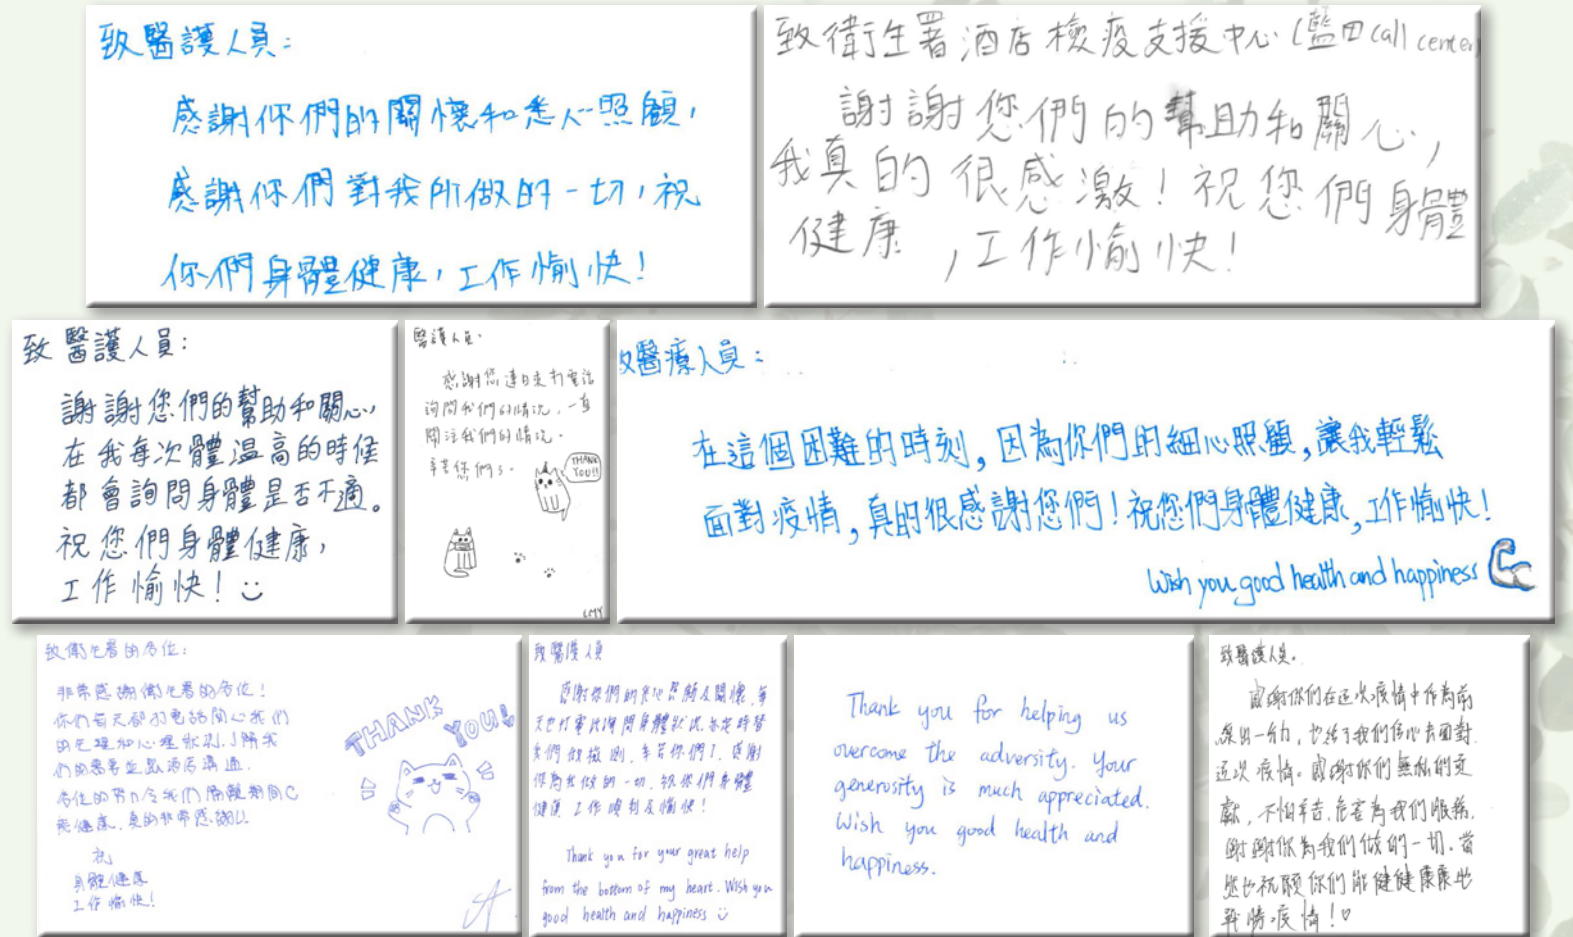 致醫護人員：
感謝你們的關懷和悉心照顧，
感謝你們對我所做的一切，祝
你們身體健康，工作愉快！
致衛生署酒店檢疫支援中心（藍田call center
謝謝您們的幫助和關心，
我真的很感激！祝您們身體
健康，工作愉快！
致醫護人員：
謝謝您們的幫助和關心，
在我每次體溫高的時候
都會詢問身體是否不適。
祝您們身體健康，
工作愉快！
醫護人員：
感謝您連日來打電話
詢問我們的情況，一直
關注我們的情況。
辛苦您們了。
THANK
YOU!!
LMY
醫療人員：
在這個困難的時刻，因為你們的細心照顧，讓我輕鬆
面對疫情，真的很感謝您們！祝您們身體健康，工作愉快！
Wish you good health and happiness
致衛生署的各位：
非常感謝衛生署的各位！
你們每天都打電話關心我們
的生理和心理狀況，了解我
們的需要並跟酒店溝通。
各位的努力令我們隔離期間
健康，真的非常感謝！
祝
身體健康
工作愉快！
THANK
YOU!
致醫護人員
感謝你們的悉心照顧及關懷，每
天也打電話詢問身體狀況，亦定時替
我們做檢測，辛苦你們了，感謝
你為我做的一切，祝你們身體
健康，工作順利及愉快！
Thank you for your great help
from the bottom of my heart. Wish you
good health and happiness
Thank you for helping us
overcome the adversity. Your
generosity is much appreciated.
Wish you good health and
happiness.
致醫護人員。
感謝你們在這次疫情中作為前
線出一分力，也給了我們信心去面對
這次疫情。感謝你們無私的貢
獻，不怕辛苦、危害為我們服務，
謝謝你為我們做的一切，當
然也祝願你們能健健康康地
戰勝疫情！♡